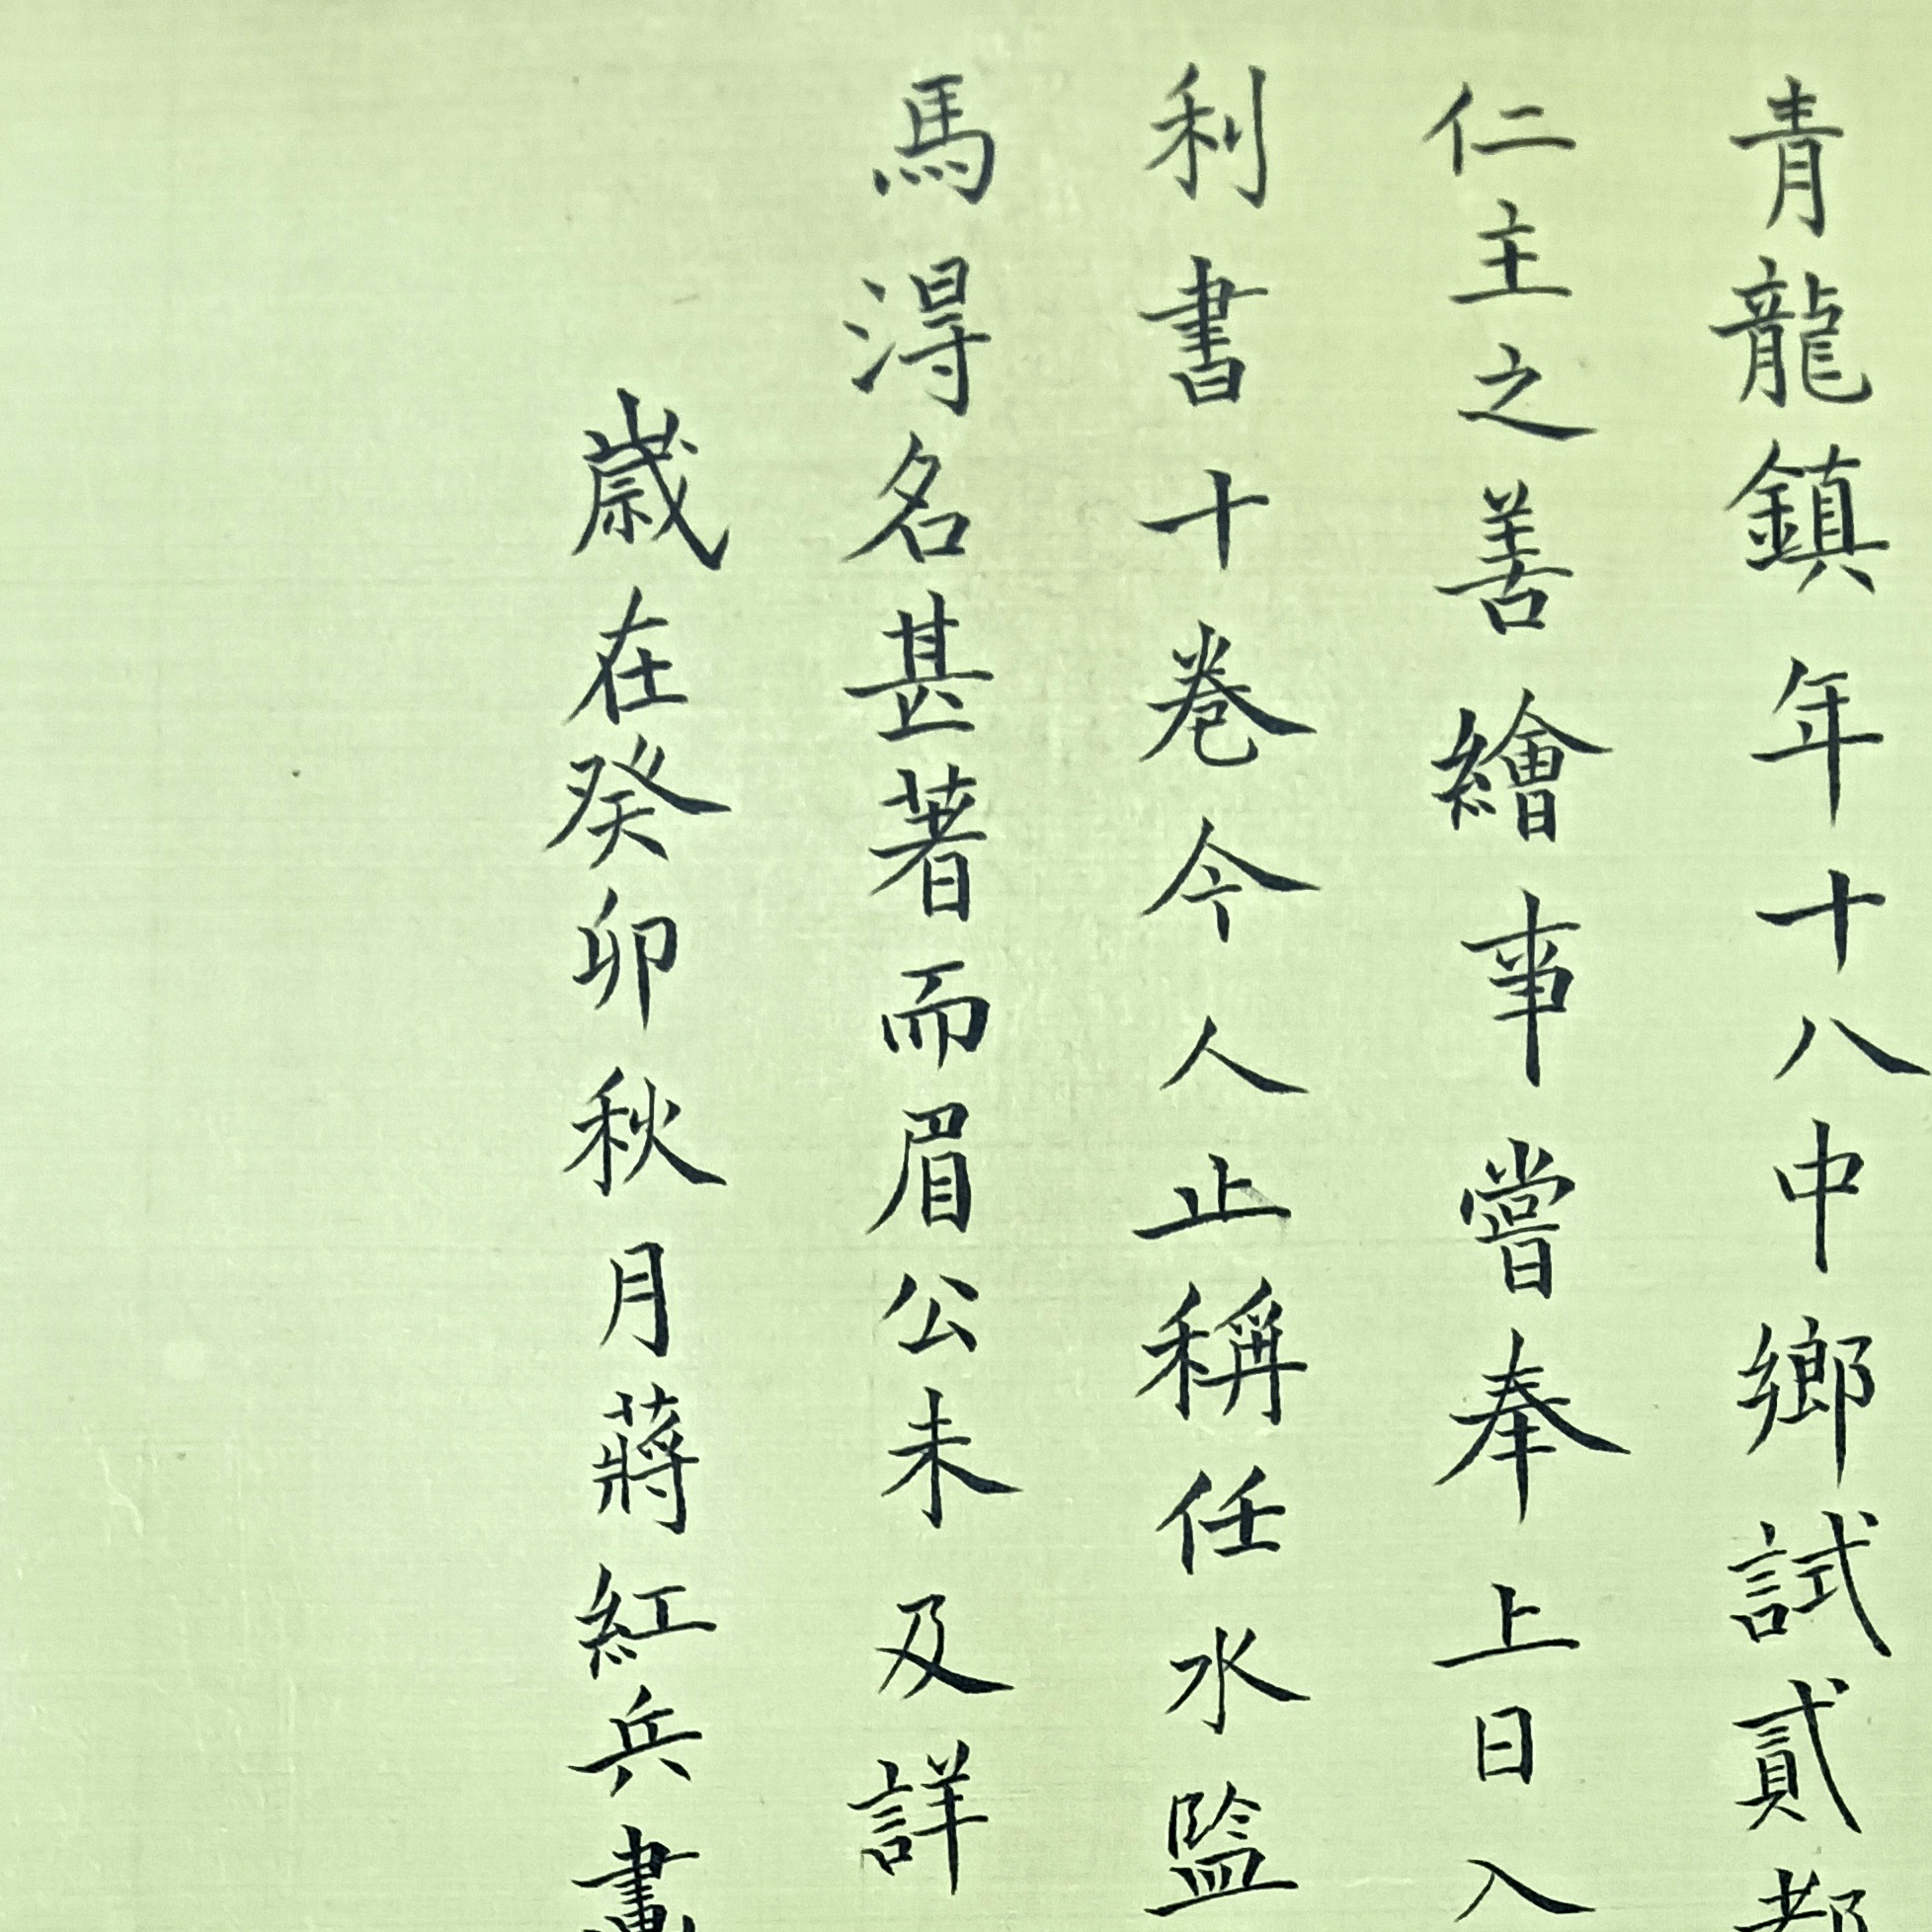 青龍鎮年十八中鄉試貳都
仁主之善繪事嘗奉上日入
利書十卷今人止稱任水監
馬淂名甚著而眉公未及詳
歲在癸卯秋月蔣紅兵畫